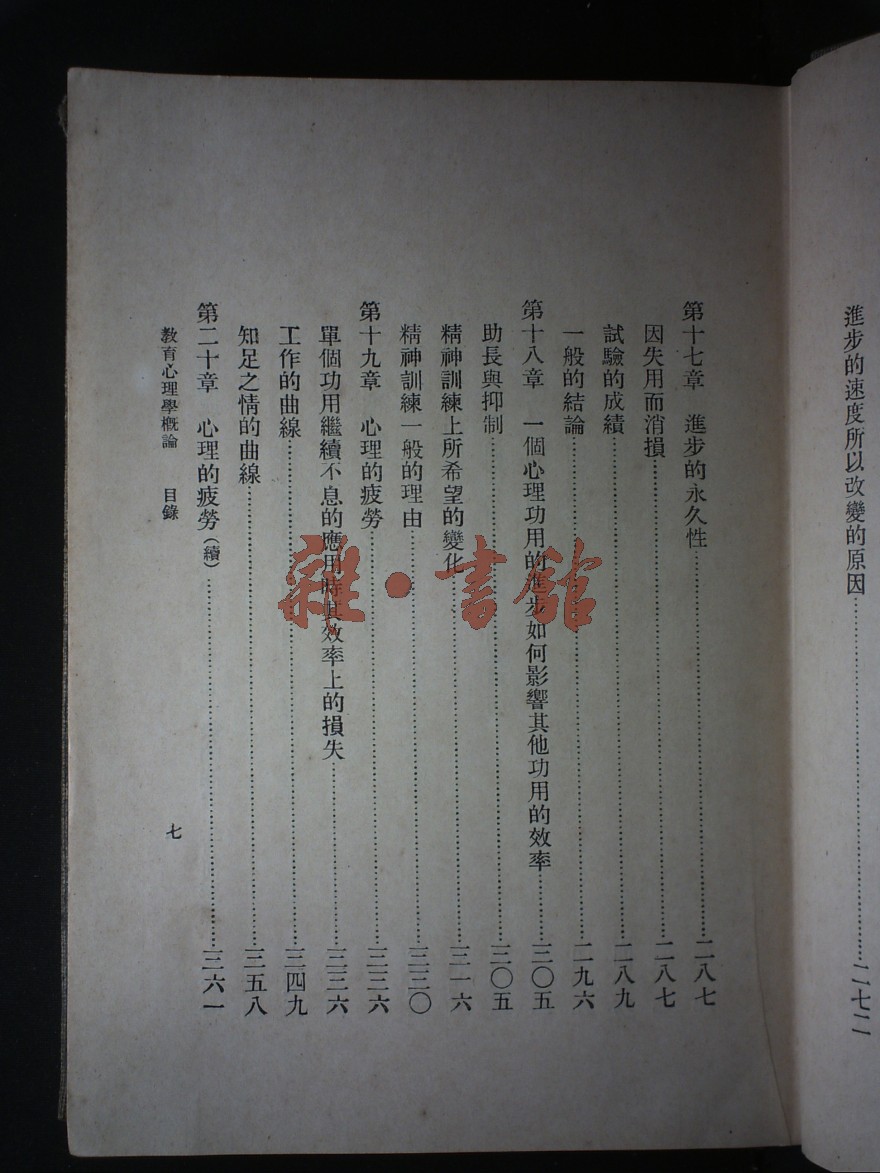 進步的速度所以改變的原因……二七二
第十七章　進步的永久性……二八七
因失用而消損……二八七
試驗的成績……二八九
一般的結論……二九六
第十八章　一個心理功用的進步如何影響其他功用的效率……三〇五
助長與抑制……三〇五
精神訓練上所希望的變化……三一六
精神訓練一般的理由……三三〇
第十九章　心理的疲勞……三三六
單個功用繼續不息的應用時其效率上的損失……三三六
工作的曲線……三四九
知足之情的曲線……三五八
第二十章　心理的疲勞（續）……三六一
教育心理學概論　目錄
七
雜·書館